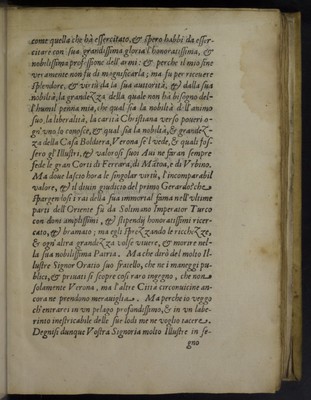 come quella che hà essercitato, & spero habbi da esser-
citare con sua grandissima gloria l'honoratissima, &
nobilissima professione dell'armi: & perche il mio fine
veramente non fu di magnificarla; ma fu per riceuere
splendore, & virtù da la sua auttorità, & dalla sua
nobiltà, la grandezza della quale non hà bisogno del-
l'humil penna mia, che qual sia la nobiltà dell'animo
suo, la liberalità, la carità Christiana verso poueri o-
gn'vno lo conosce, & qual sia la nobiltà, & grandez-
za della Casa Boldera, Verona se'l vede, & quali fos-
sero gl'Illustri, & valorosi suoi Aui ne faran sempre
fede le gran Corti di Ferrara, di Mãtoa, e di Vrbino.
Ma doue lascio hora le singolar virtù, l'incomparabil
valore, & il diuin giudicio del primo Gerardo? che
spargendosi i rai della sua immortal fama nell'vltime
parti dell'Oriente fù da Solimano Imperator Turco
con doni amplissimi, & stipendij honoratissimi ricer-
cato, & bramato; ma egli sprezzando le ricchezze,
& ogni altra grandezza volse viuere, & morire nel-
la sua nobilissima Patria. Ma che dirò del molto Il-
lustre Signor Oratio suo fratello, che ne i maneggi pu-
blici, & priuati si scopre così raro ingegno, che non
solamente Verona, ma l'altre Città circonuicine an-
cora ne prendono merauiglia. Ma perche io veggo
ch'entrarei in vn pelago profondissimo, & in vn labe-
rinto inestricabile delle sue lodi me ne voglio tacere.
Degnisi dunque Vostra Signoria molto Illustre in se-
gno